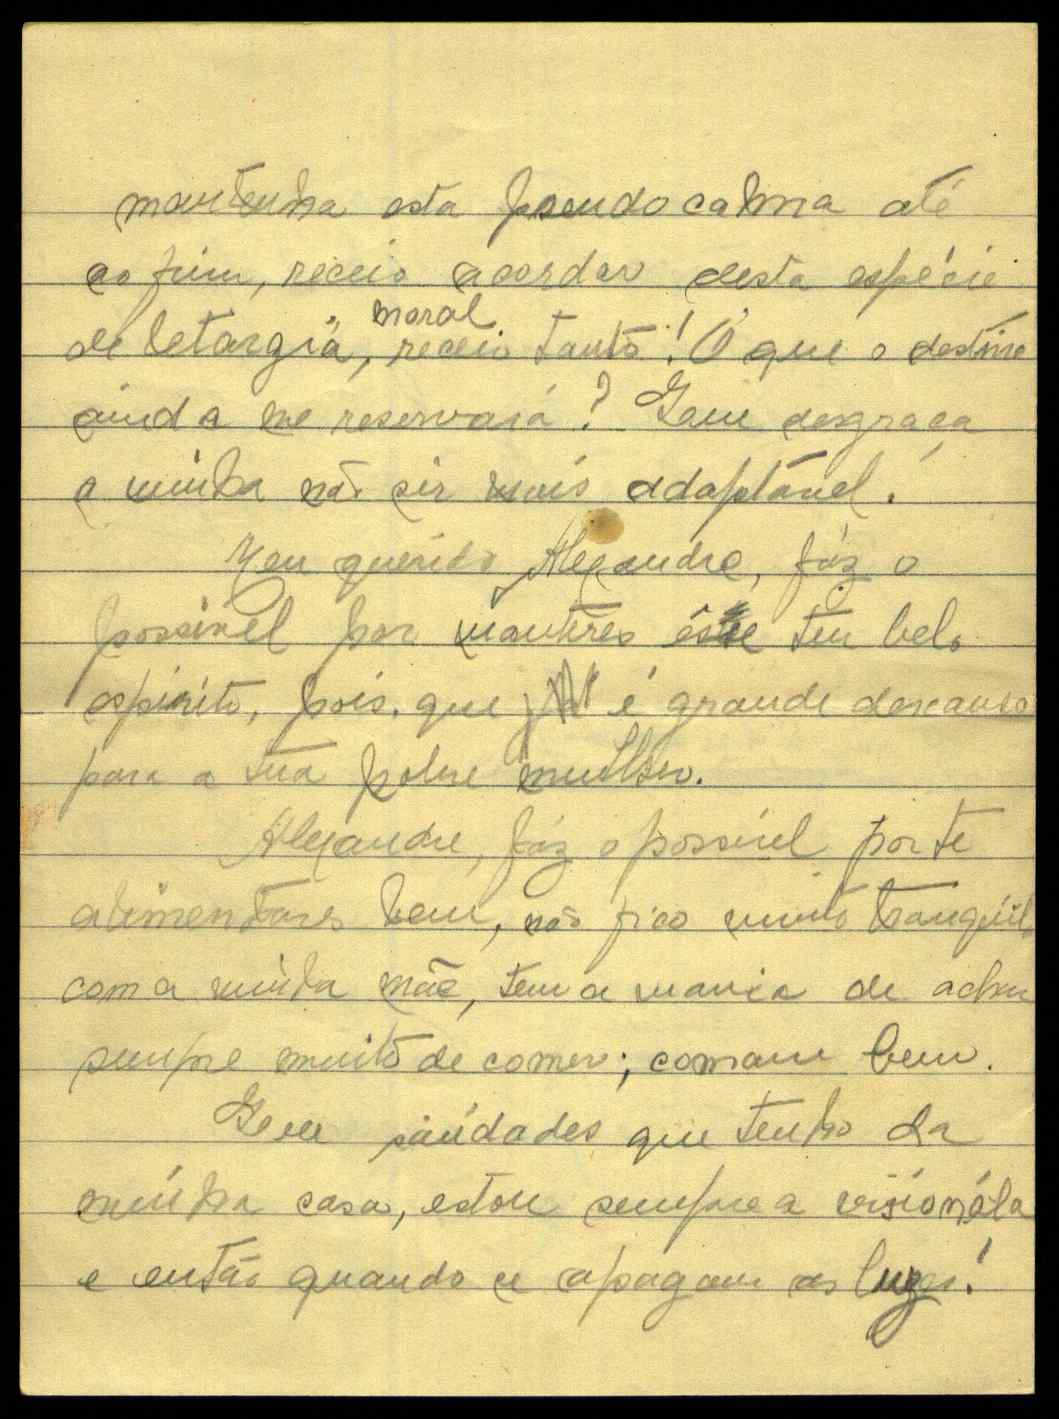 mantenha esta pseudo calma até
ao fim, receio acordar desta espécie
de letargia moral, receio tanto! O que o destino
ainda me reservará? Que desgraça
a minha não ser mais adaptável.
Meu querido Alexandre, fáz o
possivel por mantêres êste teu belo
espirito, pois, que é grande descanso
para a tua pobre mulher.
Alexandre, fáz o possivel por te
alimentares bem, não fico muito tranquila
com a minha mãe, tem a mania de achar
sempre muito de comer; comam bem.
Que saúdades que tenho da
minha casa, estou sempre a visionála
e então quando se apagam as luzes!